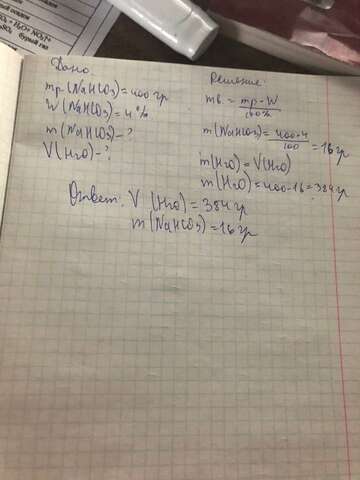 Дано:
mр(NaHCO3) = 400 гр
W(NaHCO3) = 4%
m(NaHCO3) - ?
V(H2O) - ?
Решение:
mв = mр · W
100%
m(NaHCO3) = 400·4 = 16 гр
100
m(H2O) = V(H2O)
m(H2O) = 400-16 = 384 гр
Ответ: V (H2O) = 384 гр
m(NaHCO3) = 16 гр
бурый газ